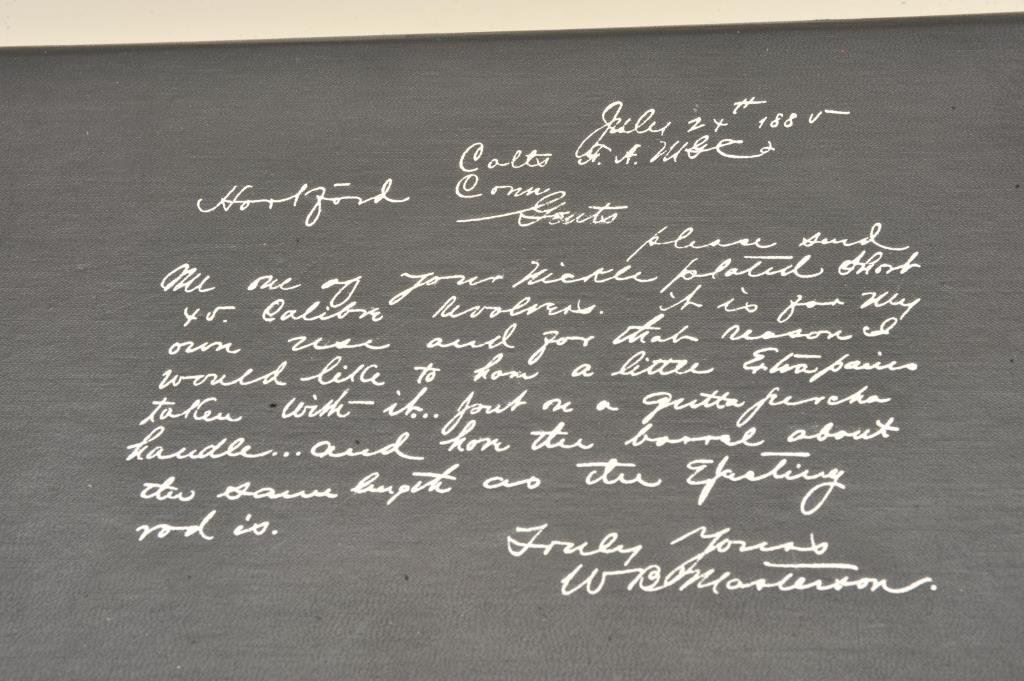 July 24th 1885
Colts F. A. M G Co
Hartford Conn
Gents
please send
Me one of your Nickle plated short
45. Calibre revolvers. it is for My
own use and for that reason I
would like to have a little Extra pains
taken with it.. put on a gutta percha
handle... and have the barrel about
the same length as the Ejecting
rod is.
Truly Yours
W B Masterson.